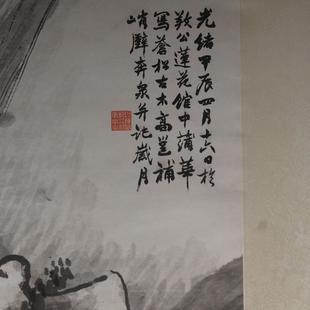 光緒甲辰四月十六日於
敬公蓮花館中蒲華
寫蒼松古木高邕補
峭壁奔泉并記歲月